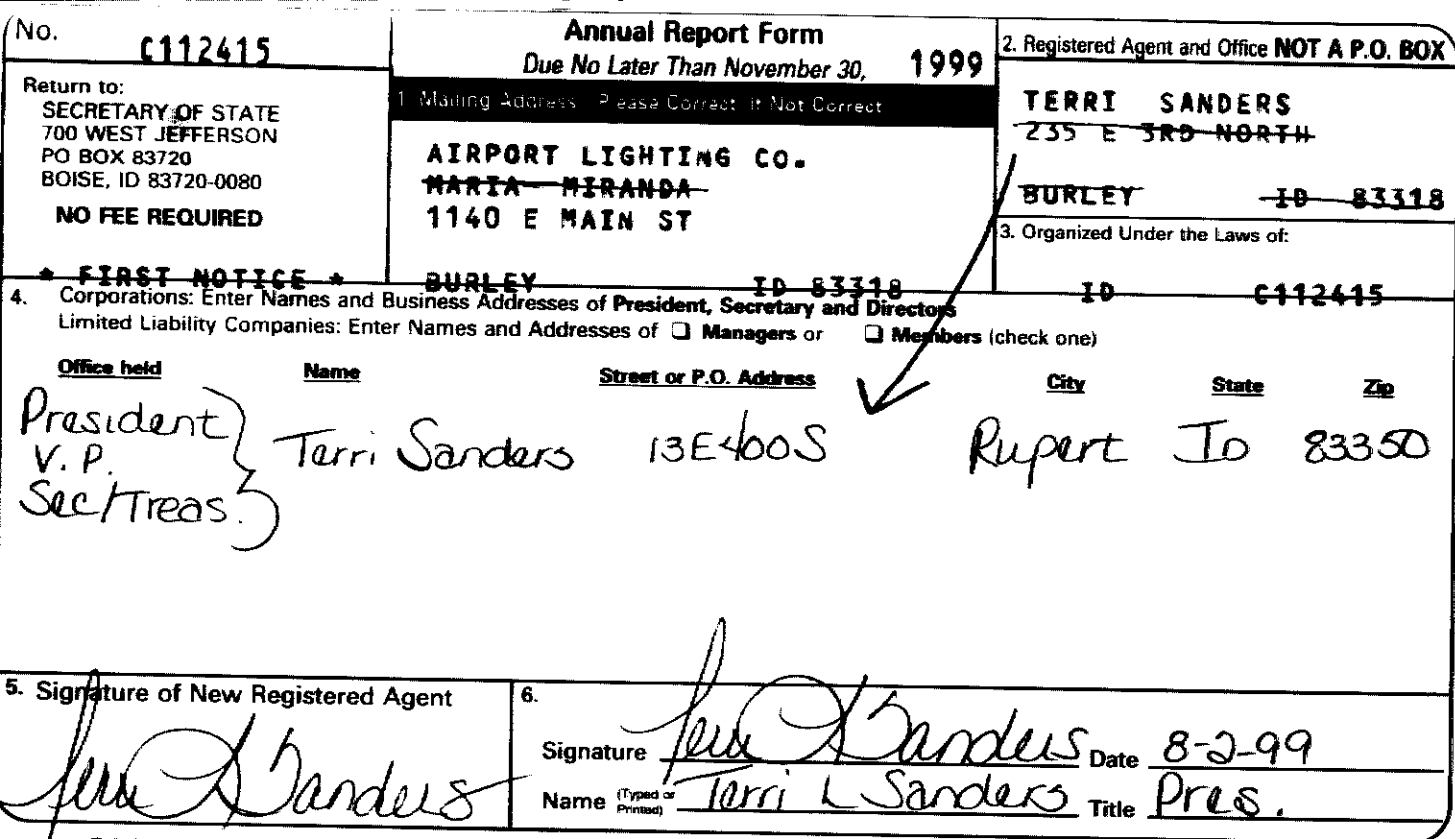 No. C112415
Return to:
SECRETARY OF STATE
700 WEST JEFFERSON
PO BOX 83720
BOISE, ID 83720-0080
NO FEE REQUIRED
* FIRST NOTICE *
Annual Report Form
Due No Later Than November 30, 1999
1. Mailing Address Please Correct If Not Correct
AIRPORT LIGHTING CO.
MARIA MIRANDA
1140 E MAIN ST
BURLEY ID 83318
2. Registered Agent and Office NOT A P.O. BOX
TERRI SANDERS
235 E 3RD NORTH
BURLEY ID 83318
3. Organized Under the Laws of:
ID C112415
4. Corporations: Enter Names and Business Addresses of President, Secretary and Directors
Limited Liability Companies: Enter Names and Addresses of ❑ Managers or ❑ Members (check one)
Office held Name Street or P.O. Address City State Zip
President
V. P. Terri Sanders 13E400S Rupert ID 83350
Sec/Treas.
5. Signature of New Registered Agent
Terri L Sanders
6.
Signature Terri L Sanders Date 8-2-99
Name (Typed or Printed) Terri L Sanders Title Pres.